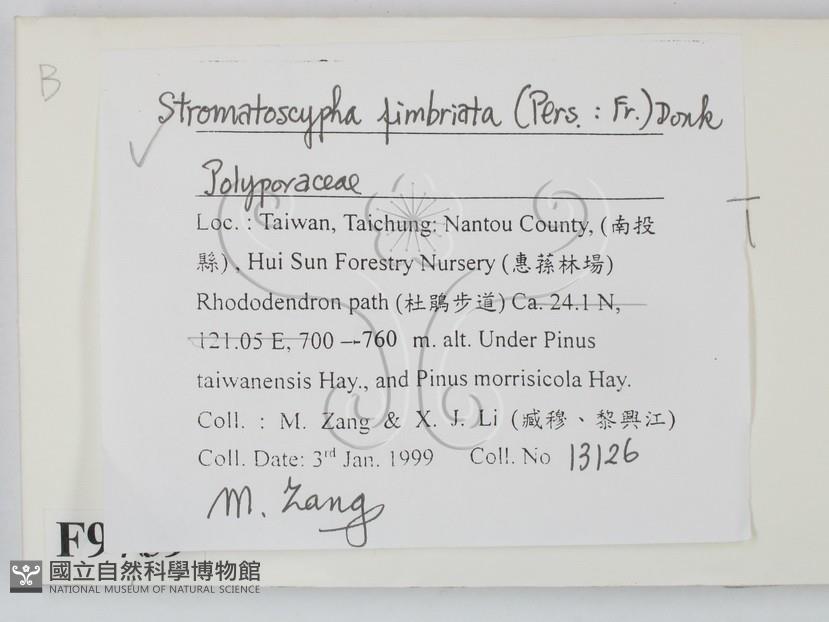 B
Stromatoscypha fimbriata (Pers. : Fr.) Donk
Polyporaceae
Loc. : Taiwan, Taichung: Nantou County, (南投
縣) , Hui Sun Forestry Nursery (惠蓀林場)
Rhododendron path (杜鵑步道) Ca. 24.1 N,
121.05 E, 700 --760 m. alt. Under Pinus
taiwanensis Hay., and Pinus morrisicola Hay.
Coll. : M. Zang & X. J. Li (臧穆、黎興江)
Coll. Date: 3rd Jan. 1999 Coll. No 13126
M. Zang
國立自然科學博物館
NATIONAL MUSEUM OF NATURAL SCIENCE